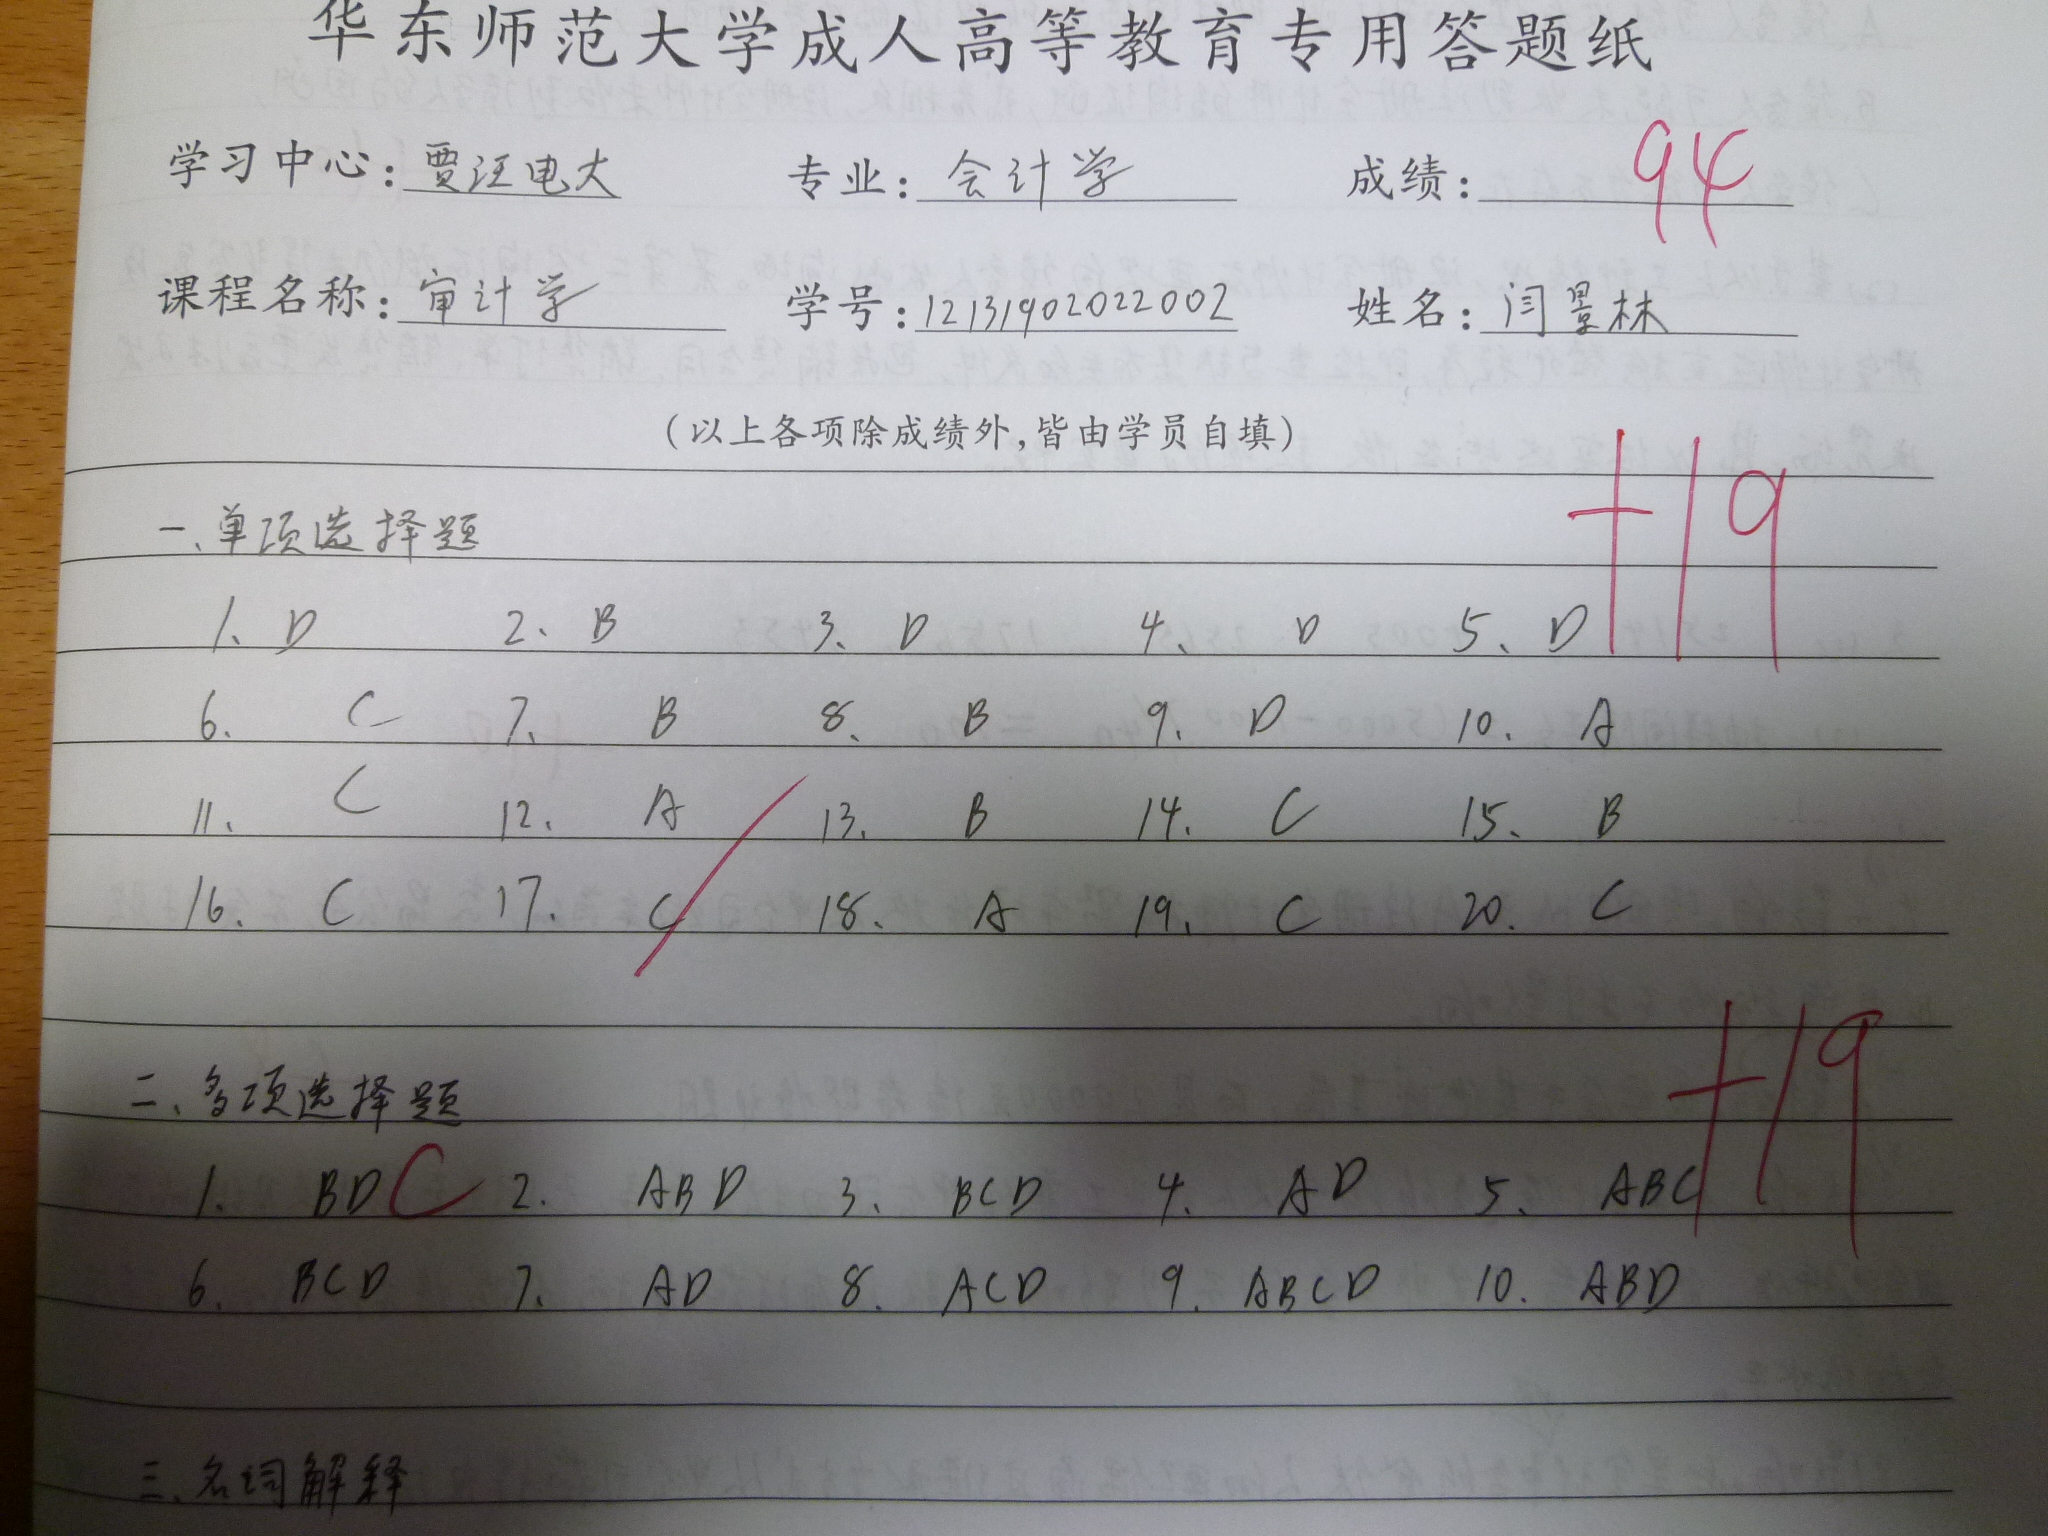 华东师范大学成人高等教育专用答题纸
学习中心:贾汪电大 专业:会计学 成绩:94
课程名称:审计学 学号:12131902022002 姓名:闫景林
(以上各项除成绩外,皆由学员自填)
一、单项选择题 +19
1、D 2、B 3、D 4、D 5、D
6、C 7、B 8、B 9、D 10、A
11、C 12、A 13、B 14、C 15、B
16、C 17、C 18、A 19、C 20、C
二、多项选择题 +19
1、BDC 2、ABD 3、BCD 4、AD 5、ABC
6、BCD 7、AD 8、ACD 9、ABCD 10、ABD
三、名词解释